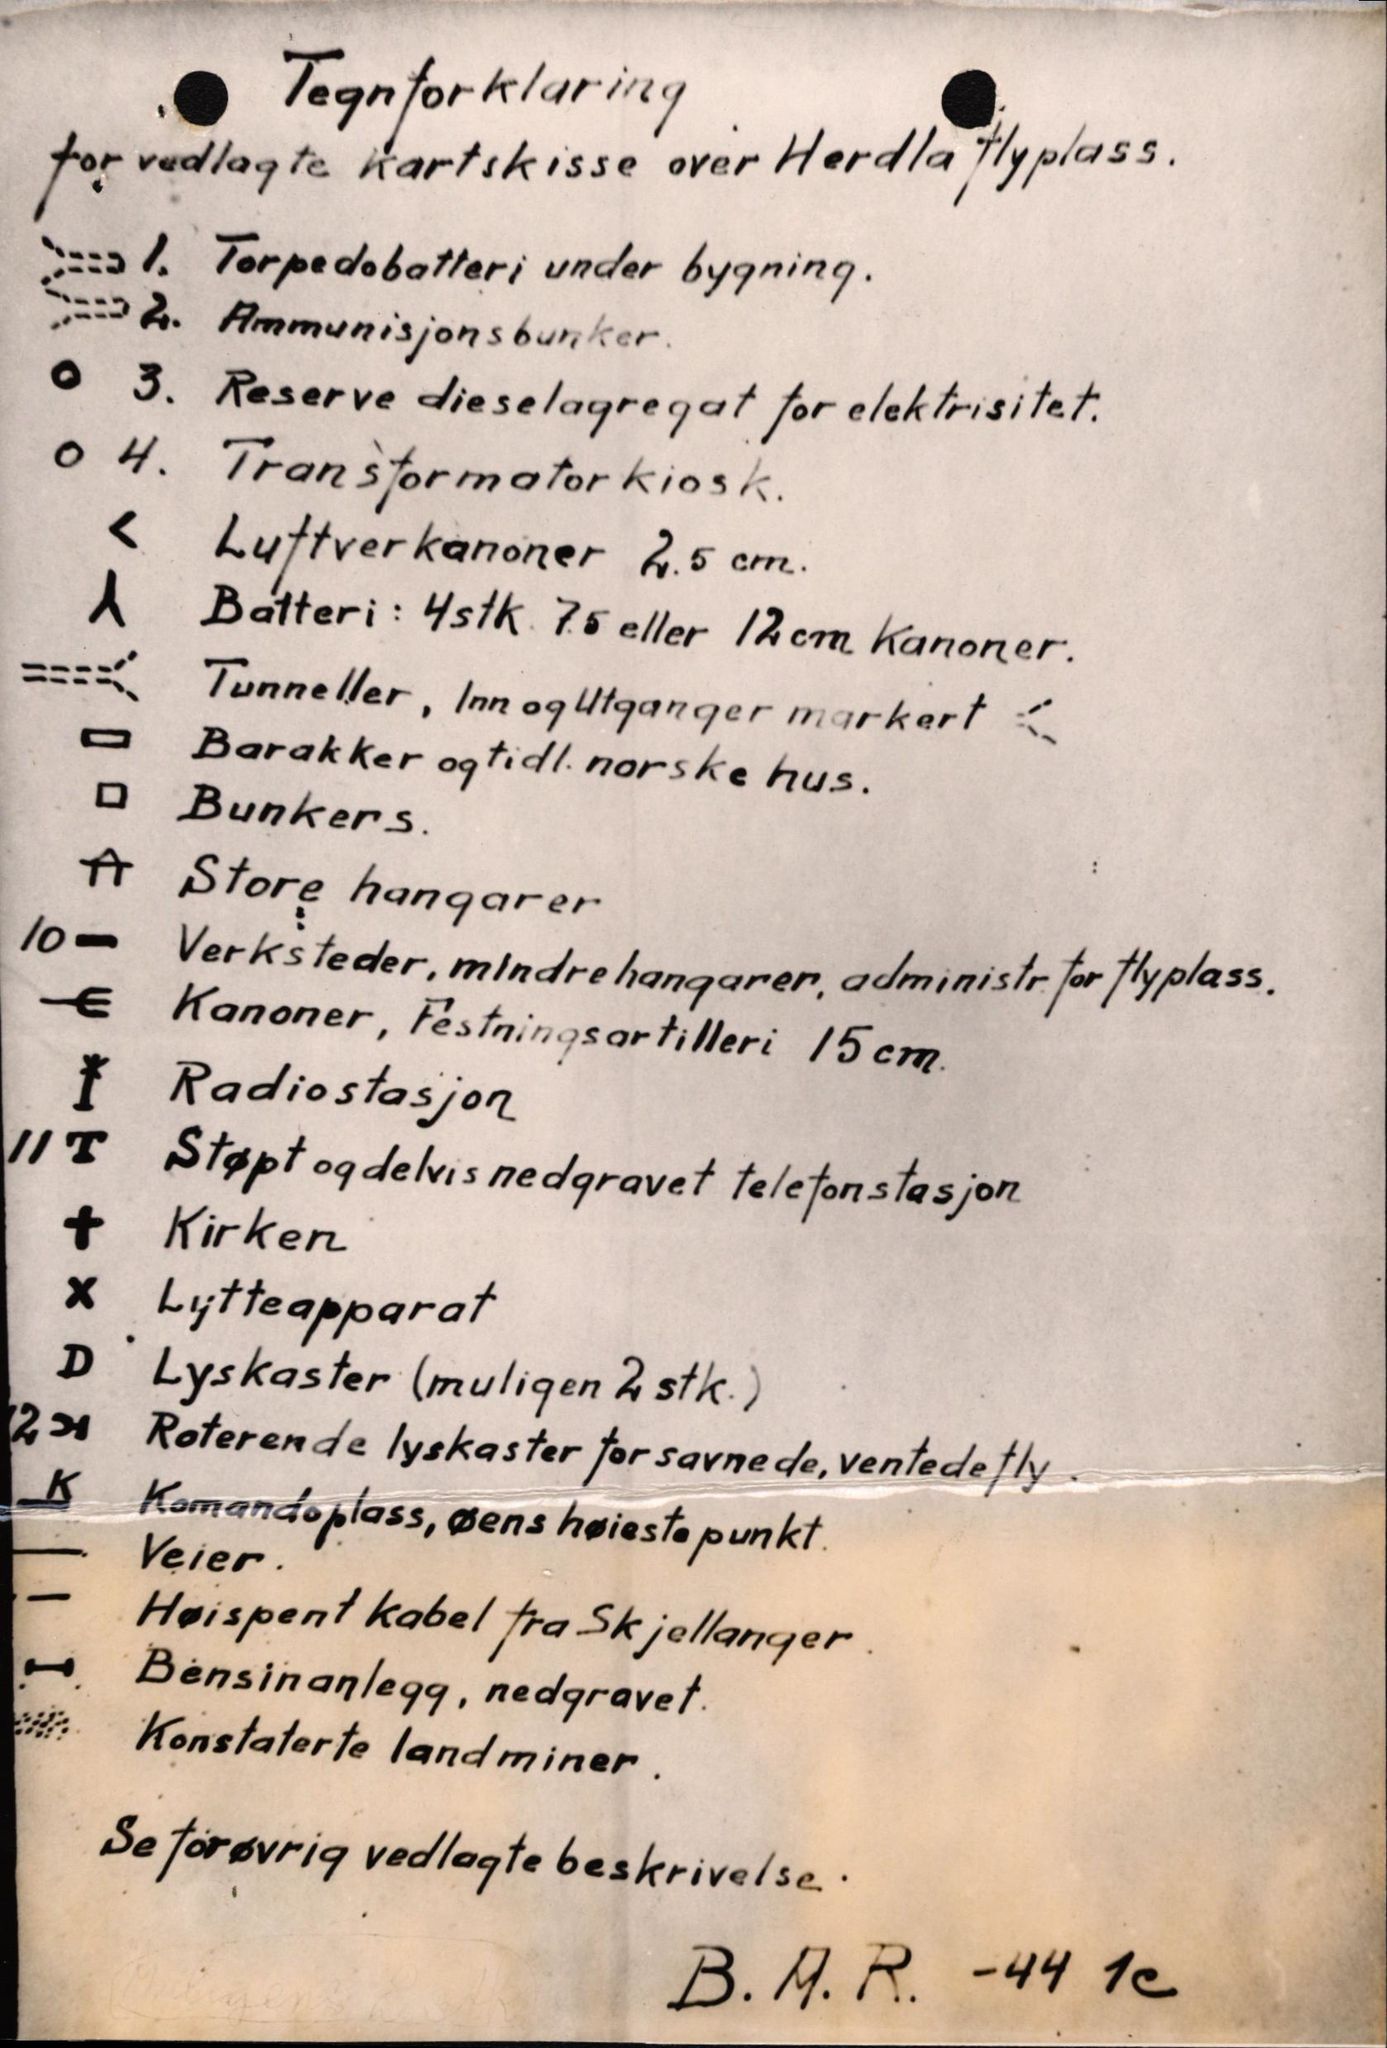 Tegnforklaring
for vedlagte kartskisse over Herdla flyplass.
1. Torpedobatteri under bygning.
2. Ammunisjonsbunker.
3. Reserve dieselagregat for elektrisitet.
4. Transformatorkiosk.
< Luftverkanoner 2.5 cm.
Batteri: 4 stk. 7.5 eller 12 cm kanoner.
Tunneller, Inn og Utganger markert
Barakker og tidl. norske hus.
Bunkers.
Store hangarer
10 Verksteder, mindre hangarer, administr. for flyplass.
Kanoner, Festningsartilleri 15 cm.
Radiostasjon
11 T Støpt og delvis nedgravet telefonstasjon
Kirken
x Lytteapparat
D Lyskaster (muligen 2 stk.)
12 Roterende lyskaster for savnede, ventede fly.
K Komandoplass, øens høieste punkt.
Veier.
Høispent kabel fra Skjellanger.
Bensinanlegg, nedgravet.
Konstaterte landminer.
Se forøvrig vedlagte beskrivelse.
B. A. R. -44 1c